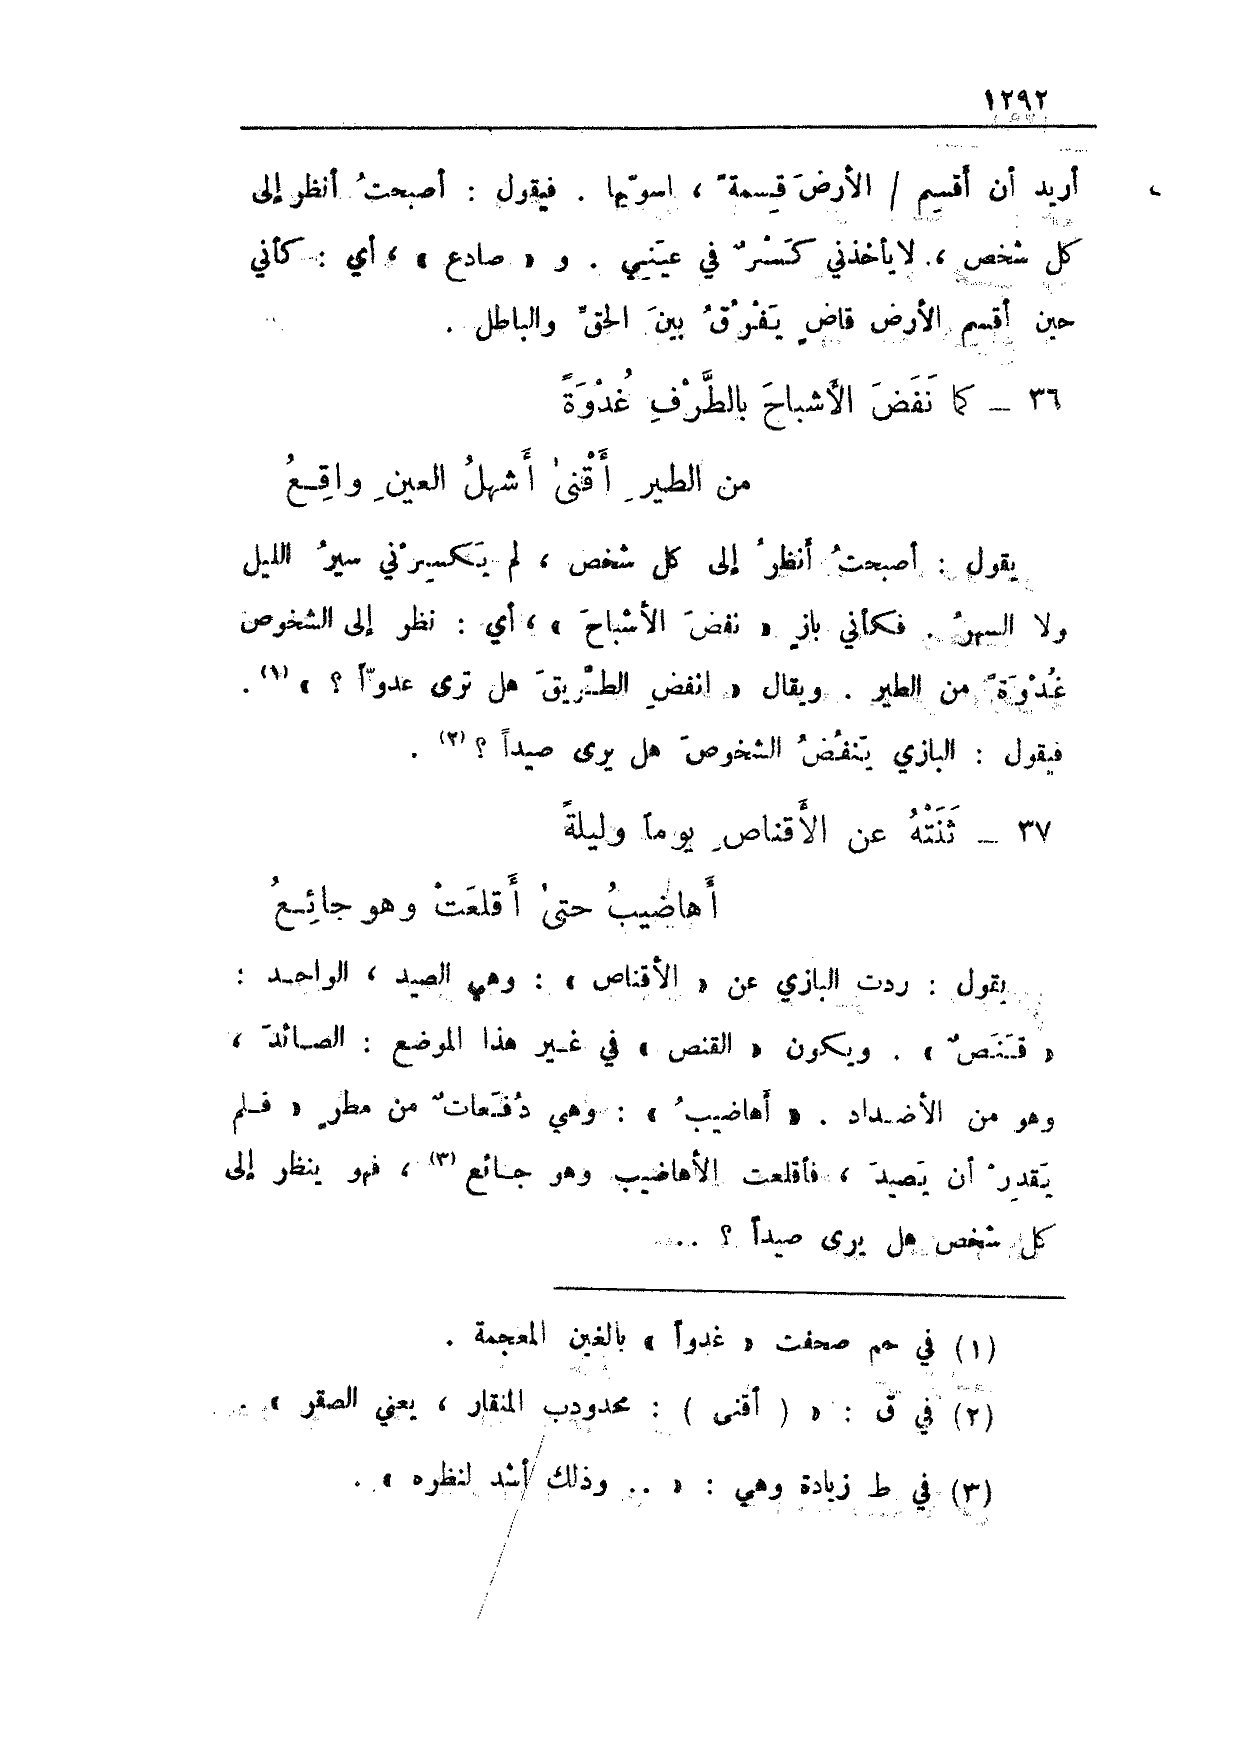 ١٢٩٢
أريد أن أقسِم / الأرضَ قِسمةً ، اسوّيها . فيقول : أصبحتُ أنظر إلى
كل شخص ، لا يأخذني كَسْرٌ في عيَنيي . و « صادع » ، أي : كأني
حين أقسم الأرض قاضٍ يَفْرُقُ بينَ الحقِّ والباطل .
٣٦ ــ كما نَفَضَ الأَشباحَ بالطَّرْفِ غُدْوَةً
من الطيرِ أَقْنىٰ أَشهلُ العينِ واقِـعُ
يقول : أصبحتُ أنظرُ إلى كل شخص ، لم يَكسِرْني سيرُ الليل
ولا السهرُ . فكأني بازٍ « نفضَ الأشْباحَ » ، أي : نظر إلى الشخوص
غُدْوَةً من الطير . ويقال « انفضِ الطَّريقَ هل ترى عدوّاً ؟ » (١) .
فيقول : البازي يَنفُضُ الشخوصَ هل يرى صيداً ؟ (٢) .
٣٧ ــ ثَنَتْهُ عن الأَقناصِ يوماً وليلةً
أَهاضيبُ حتىٰ أَقلعَتْ وهو جائِـعُ
يقول : ردت البازي عن « الأقناص » : وهي الصيد ، الواحـد :
« قَنَصٌ » . ويكون « القنص » في غـير هذا الموضع : الصـائدَ ،
وهو من الأضـداد . « أَهاضيبُ » : وهي دُفَعاتٌ من مطرٍ « فـلم
يَقدِرْ أن يَصيدَ ، فأقلعت الأهاضيب وهو جـائع (٣) ، فهو ينظر إلى
كل شخص هل يرى صيداً ؟ ..
(١) في حم صحفت « غدواً » بالغين المعجمة .
(٢) في ق : « ( أقنى ) : محدودب المنقار ، يعني الصقر » .
(٣) في ط زيادة وهي : « .. وذلك أشد لنظره » .